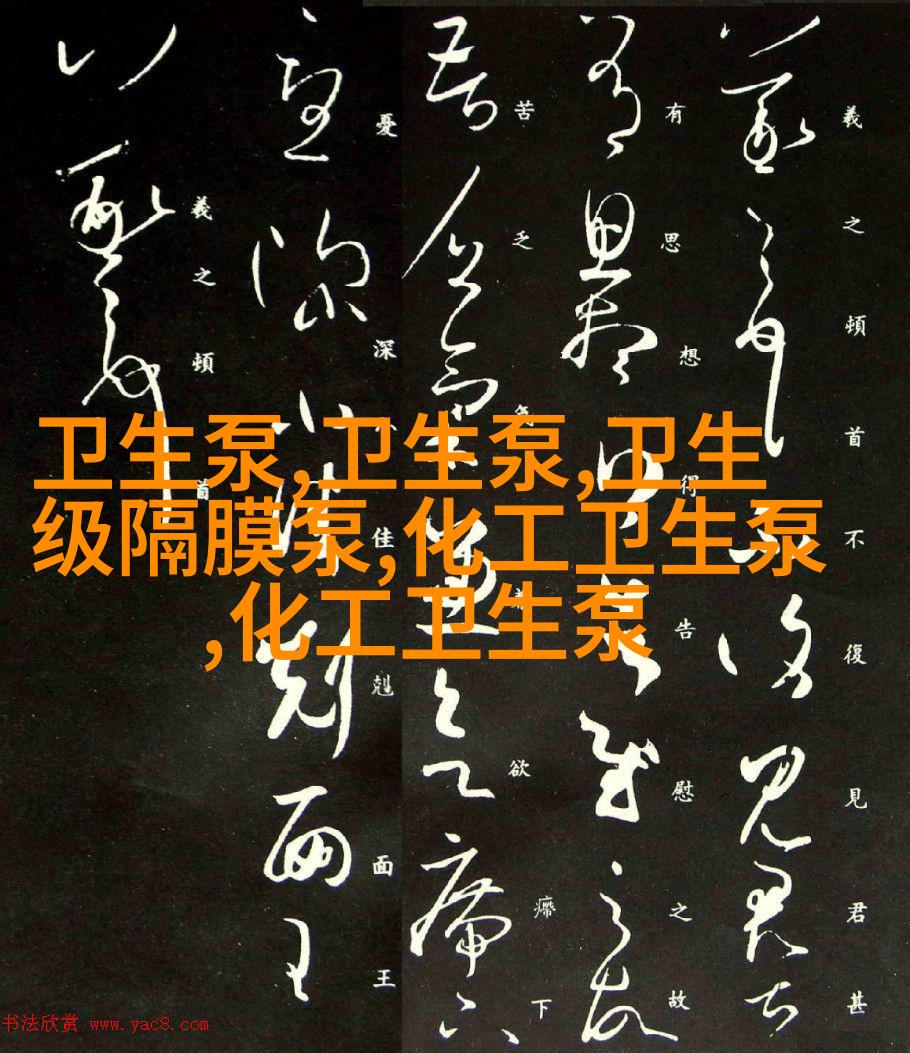 卫生泵,卫生泵,卫生
级隔膜泵,化工卫生泵
,化工卫生泵
羲之頓首不復見君甚
有思想得告慰之故
苦乏氣欲㿃下
憂深佳剋面王
羲之頓首
书法欣赏 www.yac8.com